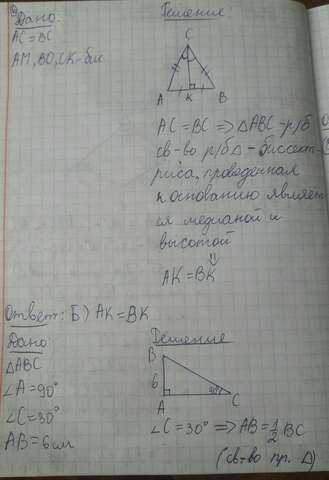 Дано:
AC = BC
AM, BO, CK - бис
Решение:
C
A K B
AC = BC => ΔABC - р/б
св-во р/б Δ - биссект-
риса, проведенная
к основанию являет-
ся медианой и
высотой
⇓
AK = BK
Ответ: Б) AK = BK
Дано:
ΔABC
∠A = 90°
∠C = 30°
AB = 6см
Решение
B
6
30°
A
C
∠C = 30° => AB = 1/2 BC
(св-во пр. Δ)